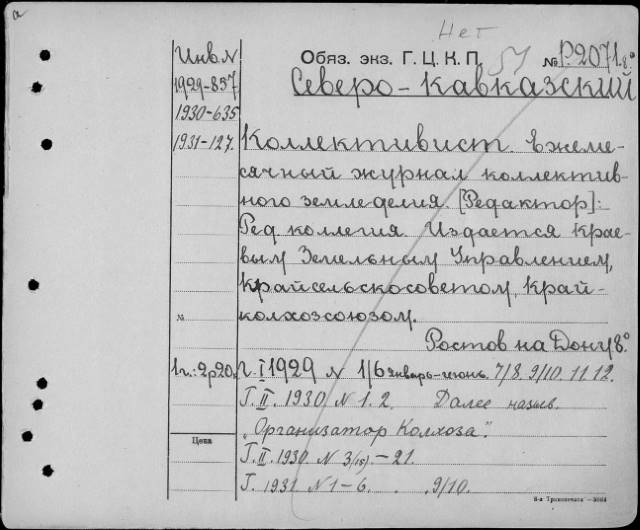 а
Нет
Инв. N
1929-857
1930-635
1931-127.
Обяз. экз. Г. Ц. К. П. 51 № Р2071 8°
Северо-Кавказский
Коллективист. Ежеме-
сячный журнал коллектив-
ного земледелия. [Редактор]:
Ред. коллегия. Издается Крае-
вым Земельным Управлением,
Крайсельскосоветом, Край-
колхозсоюзом.
№
Ростов на Дону 8°
1 г.: 2р20.
Г. I 1929 N 1/6 январь-июнь. 7/8. 9/10. 11. 12.
Г. II. 1930 N 1. 2. Далее назыв.
„Организатор Колхоза".
Цена
Г. II. 1930 N 3(15).-21.
Г. 1931 N 1-6. 9/10.